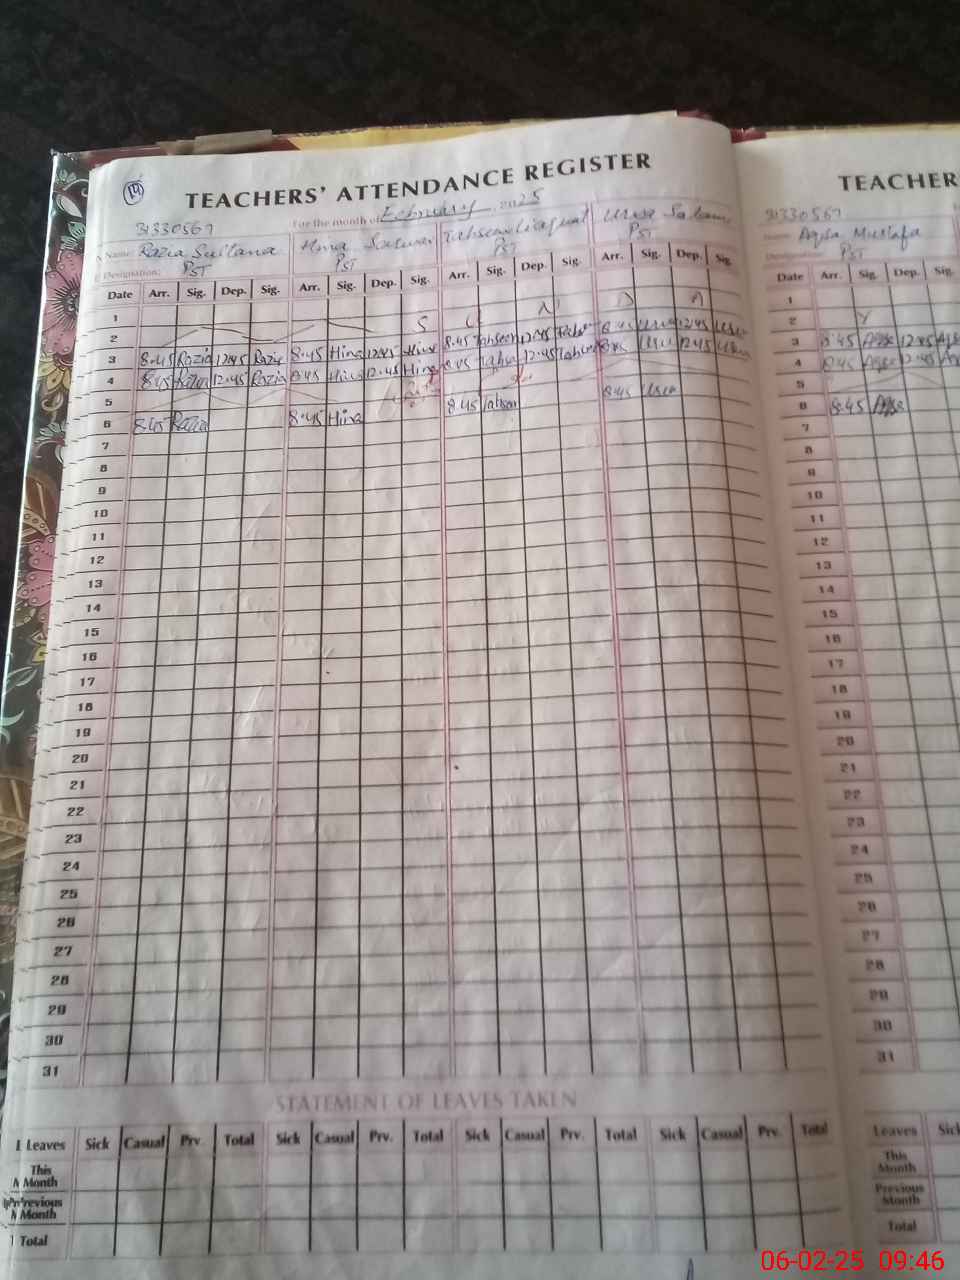 14
TEACHERS' ATTENDANCE REGISTER
For the month of February, 2025
31330567
Name: Razia Sultana Hina Tahseen Liaquat
Designation: PST PST PST PST
Date Arr. Sig. Dep. Sig. Arr. Sig. Dep. Sig. Arr. Sig. Dep. Sig. Arr. Sig. Dep. Sig.
1
2 S U N D A
3 8:45 Razia 12:45 Razia 8:45 Hina 12:45 Hina 8:45 Tahseen 12:45 8:45 12:45
4 8:45 Razia 12:45 Razia 8:45 Hina 12:45 Hina 8:45 12:45 8:45 12:45
5
6 8:45 Razia 8:45 Hina 8:45 8:45
7
8
9
10
11
12
13
14
15
16
17
18
19
20
21
22
23
24
25
26
27
28
29
30
31
STATEMENT OF LEAVES TAKEN
Leaves Sick Casual Prv. Total Sick Casual Prv. Total Sick Casual Prv. Total Sick Casual Prv. Total
This Month
Previous Month
Total
TEACHER
31330567
Aqsa Mustafa
Designation: PST
Date Arr. Sig. Dep. Sig.
1
2 Y
3 8:45 Aqsa 12:45
4 8:45 Aqsa 12:45
5
6 8:45 Aqsa
7
8
9
10
11
12
13
14
15
16
17
18
19
20
21
22
23
24
25
26
27
28
29
30
31
Leaves Sick
This Month
Previous Month
Total
06-02-25 09:46